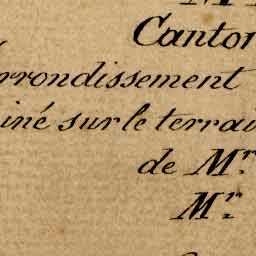 Canton
rrondissement
iné sur le terrai
de Mr.
Mr.